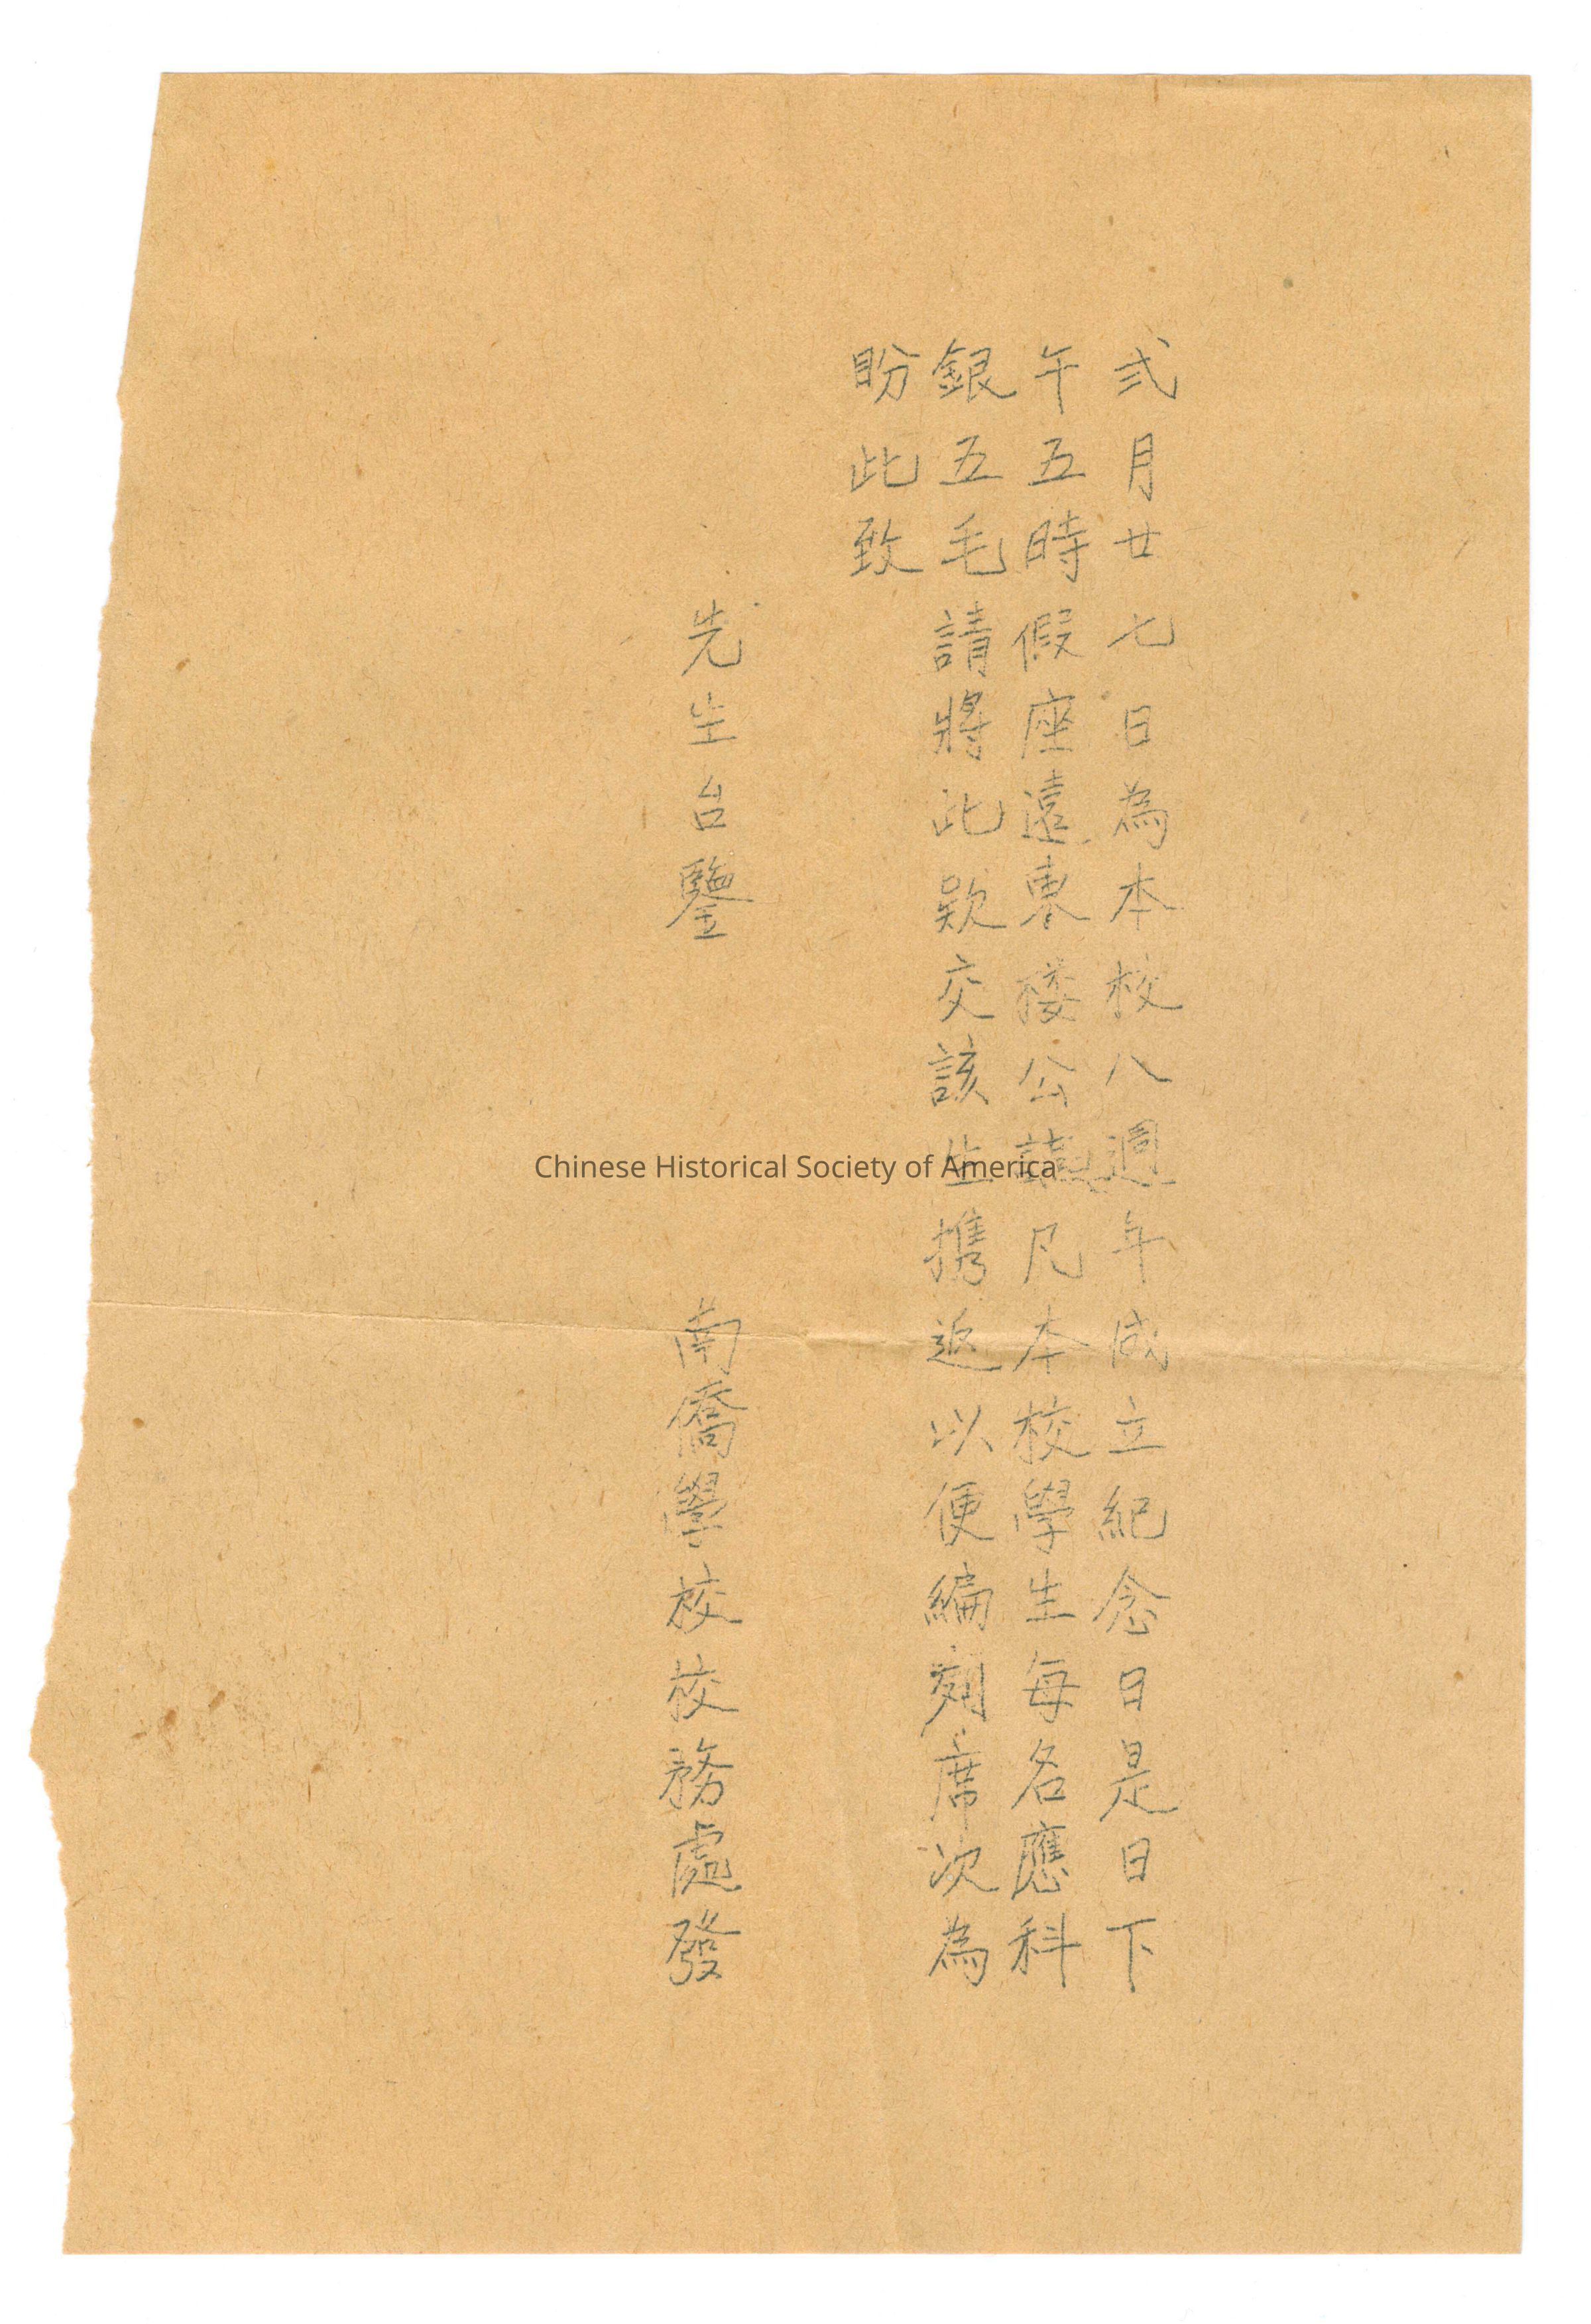 弍月廿七日為本校八週年成立紀念日是日下
午五時假座遠東楼公讌凡本校學生每名應科
銀五毛請將此欵交該生携返以便編列席次為
盼此致
先生台鑒
南僑學校校務處發
Chinese Historical Society of America